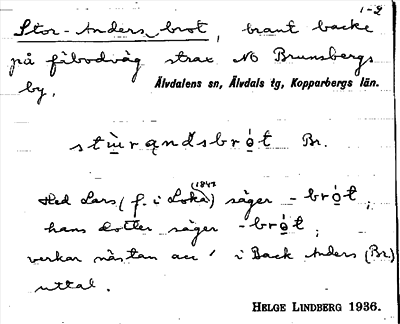 1-2
Stor-Anders brot, brant backe
på fäbodväg strax NO Brunsbergs
by.
Älvdalens sn, Älvdals tg, Kopparbergs län.
Br.
Hed Lars (f. i Loka) säger -brǫ́t,
(1847
hans dotter säger -brǫ́t;
verkar nästan acc ' i Back Anders (Br)
uttal.
HELGE LINDBERG 1936.